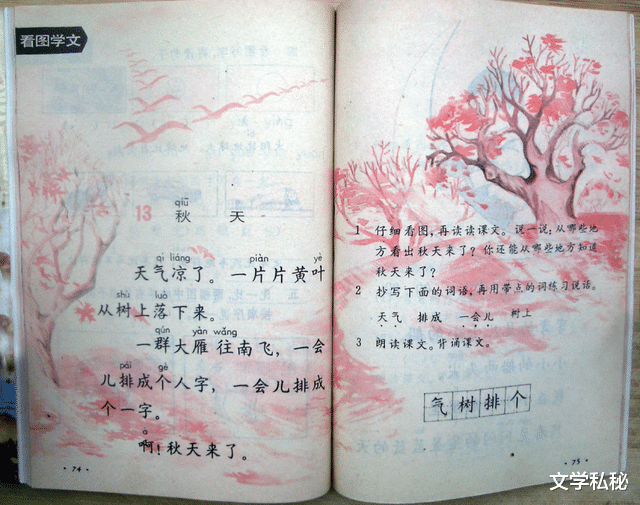 看图学文
qiū
13 秋 天
qì liáng piàn yè
天气凉了。一片片黄叶
shù luò
从树上落下来。
qún yàn wǎng
一群大雁往南飞，一会
pái gè
儿排成个人字，一会儿排成
个一字。
a
啊！秋天来了。
·74·
1 仔细看图，再读读课文。说一说：从哪些地
方看出秋天来了？你还能从哪些地方知道
秋天来了？
2 抄写下面的词语，再用带点的词练习说话。
天气 排成 一会儿 树上
3 朗读课文。背诵课文。
气树排个
·75·
文学私秘